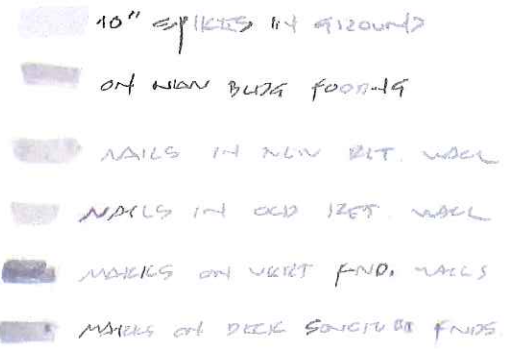 10" SPIKES IN GROUND
ON NEW BLDG FOOTING
NAILS IN NEW RET. WALL
NAILS IN OLD RET. WALL
MARKS ON VERT FND. WALLS
MARKS ON DECK FNDS.